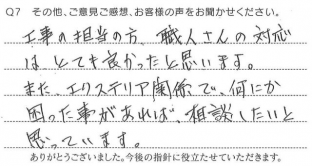 Q7 その他、ご意見ご感想、お客様の声をお聞かせください。
工事の担当の方、職人さんの対応
はとても良かったと思います。
また、エクステリア関係で、何にか
困った事があれば、相談したいと
思っています。
ありがとうございました。今後の指針に役立たせていただきます。